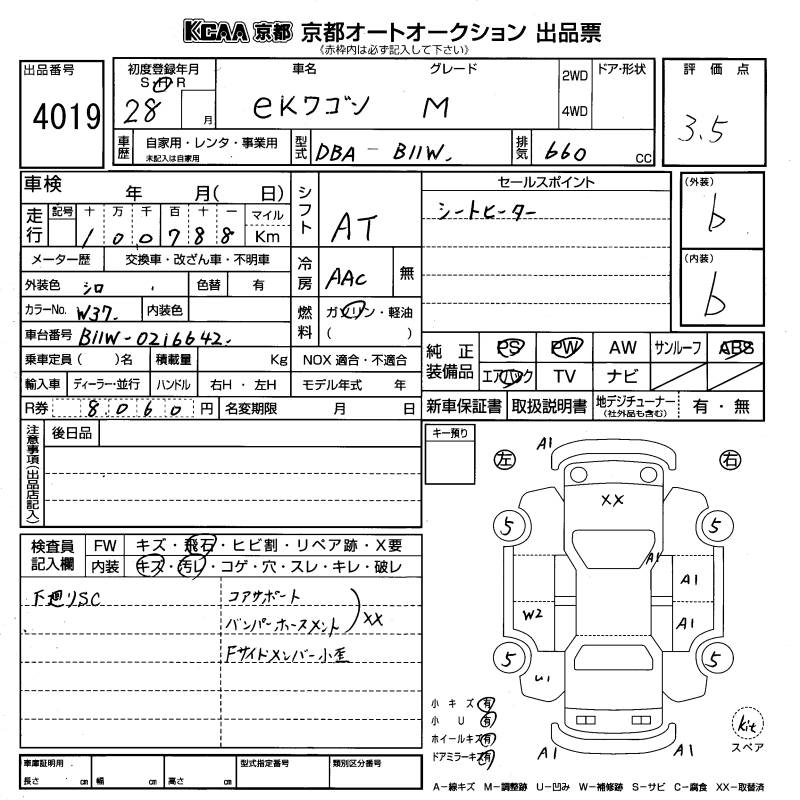 KCAA 京都 京都オートオークション 出品票
(赤枠内は必ず記入して下さい)
出品番号
4019
初度登録年月
S・H・R
28 月
車名 グレード
eKワゴン M
2WD
4WD
ドア・形状
評価点
3.5
車歴 自家用・レンタ・事業用
未記入は自家用
型式 DBA-B11W.
排気 660 cc
車検 年 月( 日)
走行 記号 十 万 千 百 十 一 マイル
1 0 0 7 8 8 Km
メーター歴 交換車・改ざん車・不明車
外装色 シロ . 色替 有
カラーNo. W37. 内装色
車台番号 B11W-0216642.
乗車定員( )名 積載量 Kg
輸入車 ディーラー・並行 ハンドル 右H・左H
R券 8060円 名変期限 月 日
シフト AT
冷房 AAC 無
燃料 ガソリン・軽油
( )
NOX 適合・不適合
モデル年式 年
セールスポイント
シートヒーター
(外装)
b
(内装)
b
純正装備品 PS PW AW サンルーフ ABS
エアバック TV ナビ
新車保証書 取扱説明書 地デジチューナー 有・無
(社外品も含む)
注意事項(出品店記入)
後日品
キー預り
検査員記入欄
FW キズ・飛石・ヒビ割・リペア跡・X要
内装 キズ・汚レ・コゲ・穴・スレ・キレ・破レ
下廻りSC
コアサポート
バンパーホースメント
XX
Fサイドメンバー小歪
左 右
A1
XX
5 5
A1
A1
W2 A1
5 5
U1
A1 A1
小キズ 有
小U 有
ホイールキズ 有
ドアミラーキズ 有
kit
スペア
車庫証明用
長さ cm 幅 cm 高さ cm
型式指定番号
類別区分番号
A-線キズ M-調整跡 U-凹み W-補修跡 S-サビ C-腐食 XX-取替済